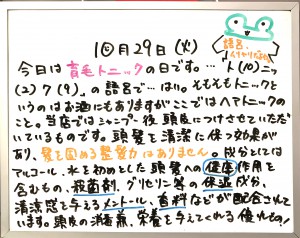 10月29日(火)
語呂、
ムリヤリだよね
今日は育毛トニックの日です。…ト(10)ニッ
(2)ク(9)。の語呂で…はい。そもそもトニックと
いうのはお酒にもありますがここではヘアトニックの
こと。当店ではシャンプー後頭皮につけさせていただ
いているものです。頭髪を清潔に保つ効果が
あり、髪を固める整髪力はありません。成分としては
アルコール、水を初めとした頭髪への保湿作用を
含むもの、殺菌剤、グリセリン等の保湿成分、
清涼感を与えるメントール、香料などが配合されてい
ます。頭皮の消毒兼、栄養を与えてくれる優れもの!